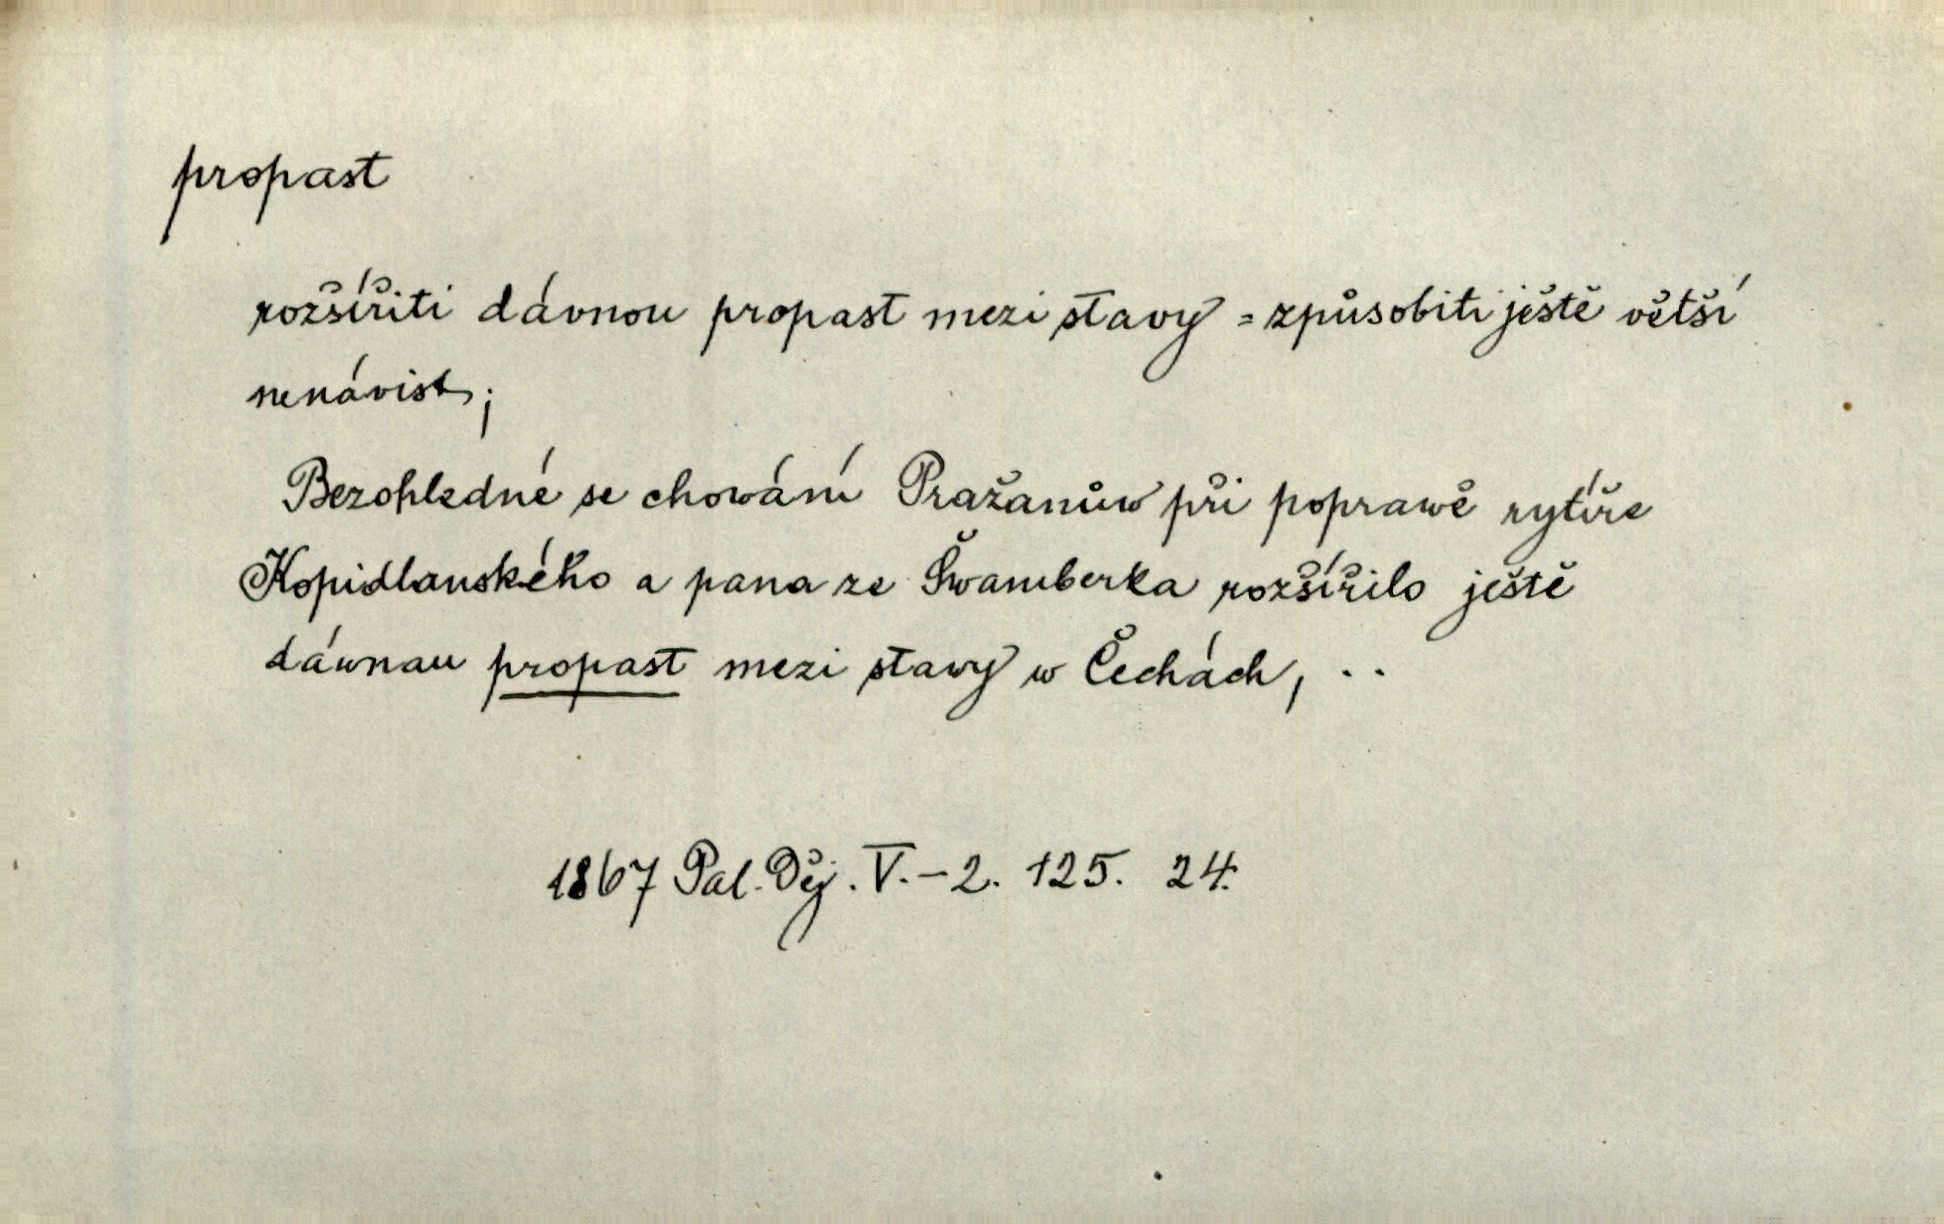 propast
rozšířiti dávnou propast mezi stavy = způsobiti ještě větší
nenávist;
Bezohledné se chowání Pražanůw při poprawě rytíře
Kopidlanského a pana ze Šwamberka rozšířilo ještě
dáwnau propast mezi stawy w Čechách, ..
1867 Pal. Děj. V.-2. 125. 24.